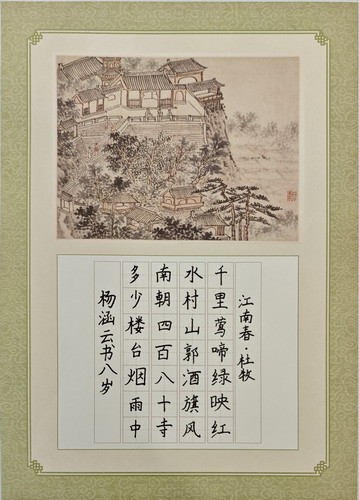 江南春·杜牧
千里莺啼绿映红
水村山郭酒旗风
南朝四百八十寺
多少楼台烟雨中
杨涵云书八岁